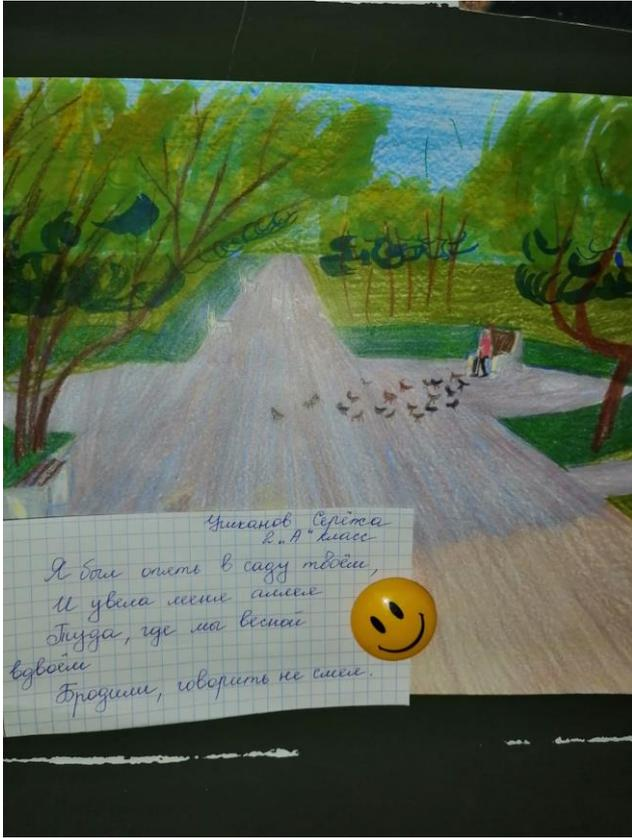 Ушканов Серёжа
2 „А" класс
Я был опять в саду твоём,
И увела меня аллея
Туда, где мы весной
вдвоём
Бродили, говорить не смея.